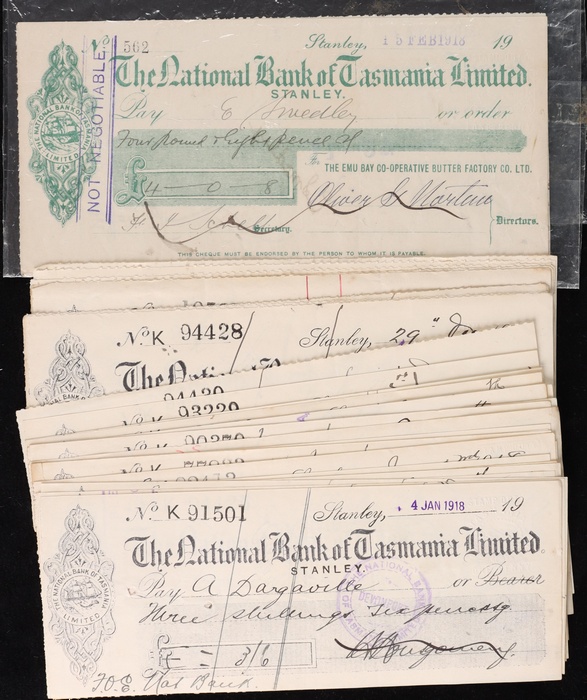 No 562 Stanley, 15 FEB 1918 19
The National Bank of Tasmania Limited.
STANLEY.
NOT NEGOTIABLE
THE NATIONAL BANK OF TASMANIA LIMITED
Pay E Smedley or order
Four pound & eight pence
For THE EMU BAY CO-OPERATIVE BUTTER FACTORY CO. LTD.
£4-0-8 Oliver
Secretary. Directors.
THIS CHEQUE MUST BE ENDORSED BY THE PERSON TO WHOM IT IS PAYABLE.
No K 94428 Stanley, 29"
The National
94420
No K 93220
No K 90250
No K 91501 Stanley, 4 JAN 1918 19
The National Bank of Tasmania Limited.
STANLEY.
THE NATIONAL BANK OF TASMANIA LIMITED
Pay A Dargaville or Bearer
Three shillings Sixpence
£ = 3/6
Nat Bank.